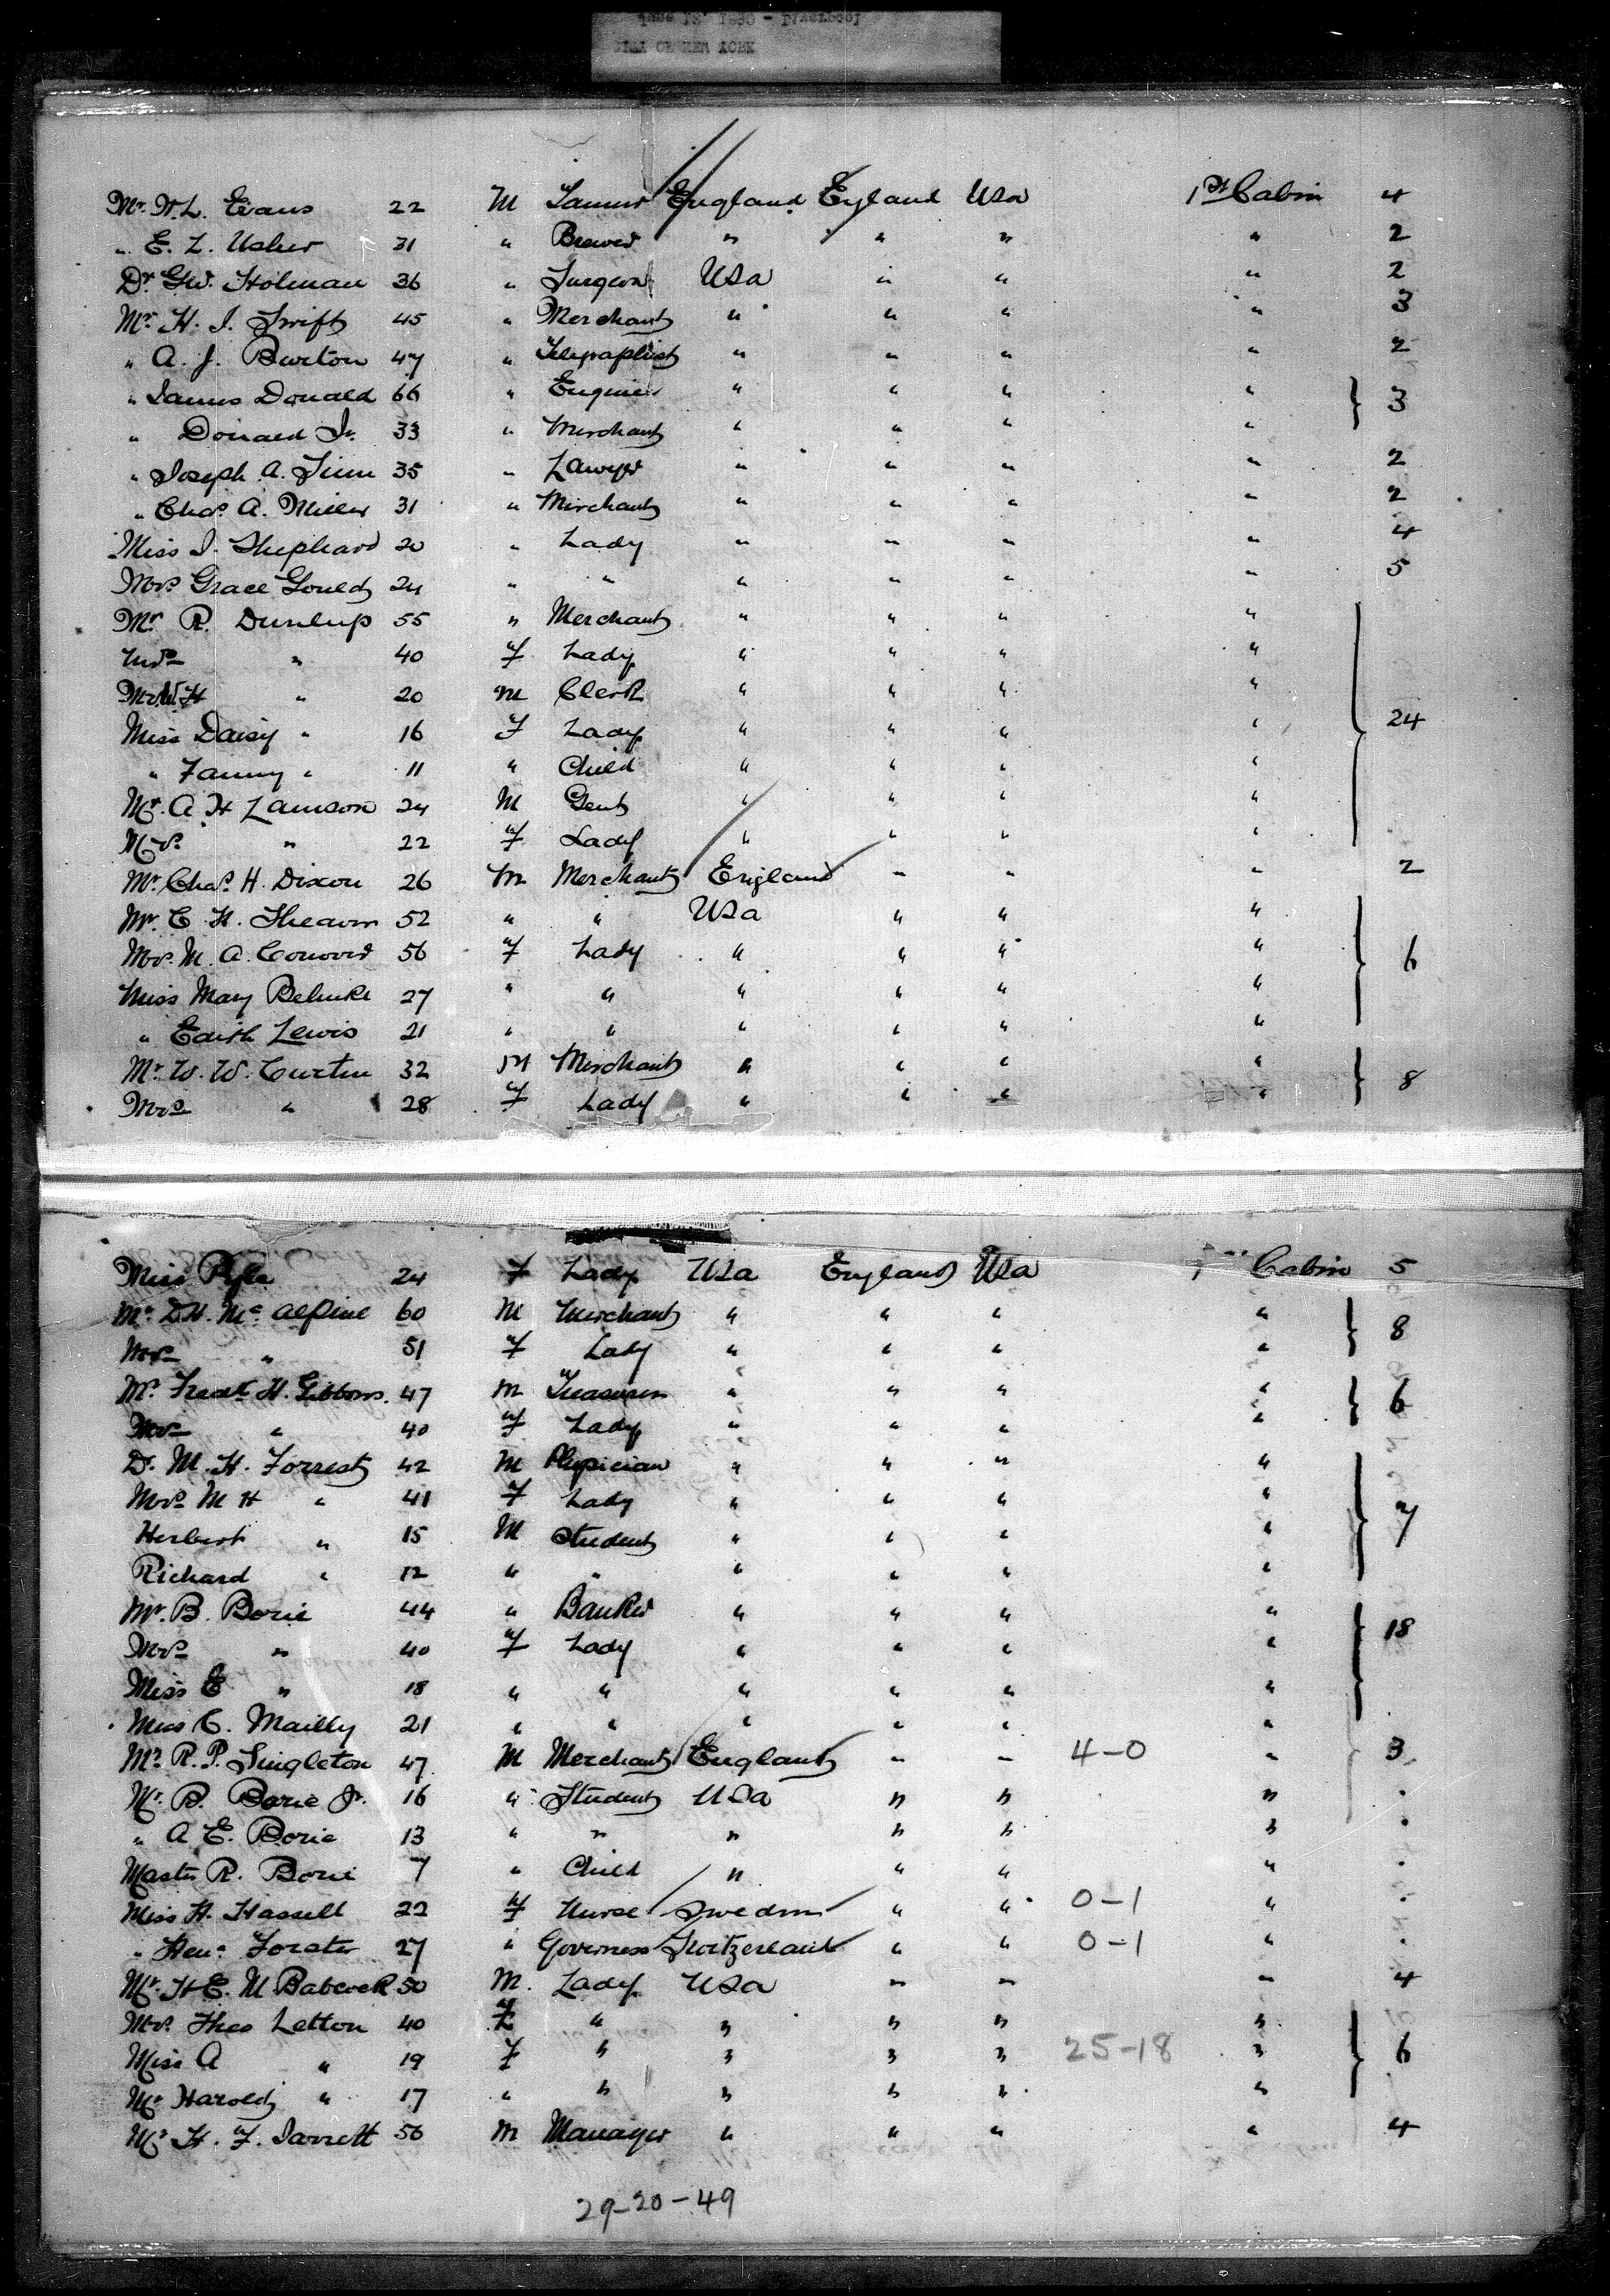 Mr. W. L. Evans 22 M Tanner England England USa 1st Cabin 4
" E. L. Usher 31 " Brewer " " " " 2
Dr. G.W. Holman 36 " Surgeon USa " " " 2
Mr. H. I. Swift 45 " Merchant " " " " 3
" A. J. Burton 47 " Telegraphist " " " " 2
" James Donald 66 " Engineer " " " " 3
" Donald Jr. 33 " Merchant " " " "
" Joseph A. 35 " Lawyer " " " " 2
" Chas. A. Miller 31 " Merchant " " " " 2
Miss I. Shephard 20 " Lady " " " " 4
Mrs. Grace Gould 24 " " " " " " 5
Mr R. Dunlup 55 " Merchant " " " "
Mrs " 40 F Lady " " " "
Mr W H " 20 M Clerk " " " "
Miss Daisy " 16 F Lady " " " " 24
" Fanny " 11 " Child " " " "
Mr. A H Lamson 24 M Gent " " " "
Mrs. " 22 F Lady " " " "
Mr. Chas. H. Dixon 26 M Merchant England " " " 2
Mr. C. H. 52 " " USa " " "
Mrs. M. A. Conover 56 F Lady " " " " 6
Miss Mary Behnke 27 " " " " " "
" Edith Lewis 21 " " " " " "
Mr. W. W. Curtin 32 M Merchant " " " " 8
Mrs " 28 F Lady " " " "
Miss Pyle 24 F Lady USa England USa Cabin 5
Mr. D H. Mc alpine 60 M Merchant " " " " 8
Mrs " 51 F Lady " " " "
Mr. Fredk H. Gibbons. 47 M Treasurer " " " " 6
Mrs " 40 F Lady " " " "
Dr. M. H. Forrest 42 M Physician " " " "
Mrs M H " 41 F Lady " " " " 7
Herbert " 15 M Student " " " "
Richard " 12 " " " " " "
Mr. B. Borie 44 " Banker " " " " 18
Mrs " 40 F Lady " " " "
Miss E " 18 " " " " " "
Miss C. Mailly 21 " " " " " "
Mr. R. P. Singleton 47 M Merchant England " " 4-0 " 3
Mr. B. Borie Jr. 16 " Student USa " " "
" A E. Borie 13 " " " " " "
Master R. Borie 7 " Child " " " "
Miss H. Hassell 22 F Nurse Sweden " " 0-1 "
" Forster 27 " Governess Switzerland " " 0-1 "
Mr. H E. M Babcock 50 M. Lady USa " " " 4
Mrs. Theo Letton 40 F " " " " "
Miss A " 19 F " " " " 25-18 " 6
Mr Harold " 17 " " " " " "
Mr H. F. Jarrett 56 M Manager " " " " 4
29-20-49